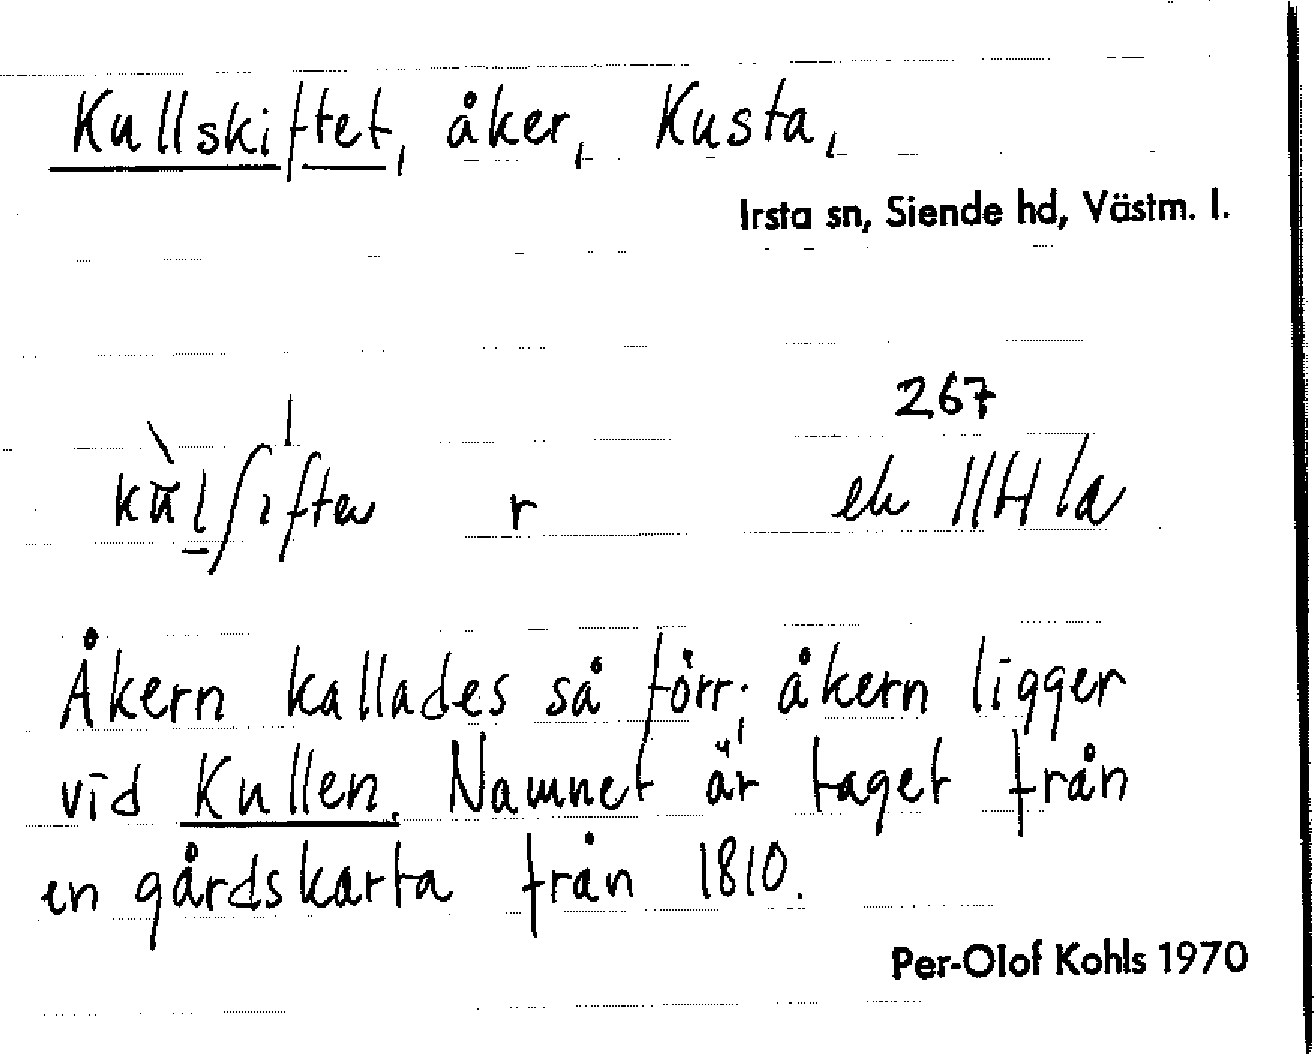 Kullskiftet, åker, Kusta,
Irsta sn, Siende hd, Västm. l.
267
r ek 11H 1a
Åkern kallades så förr; åkern ligger
vid Kullen. Namnet är taget från
en gårdskarta från 1810.
Per-Olof Kohls 1970